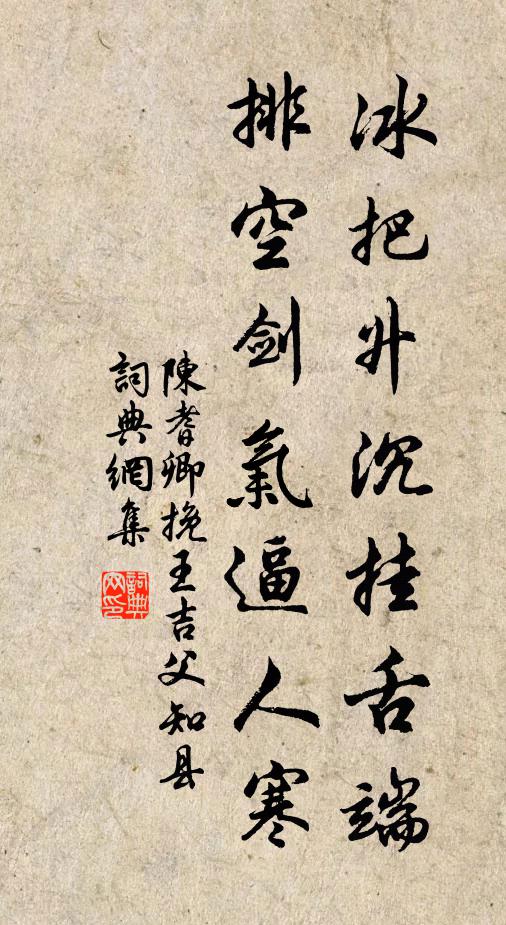 冰把升沉挂舌端
排空劍氣逼人寒
陳耆卿挽王吉父知县
詞典網集
詞典网印